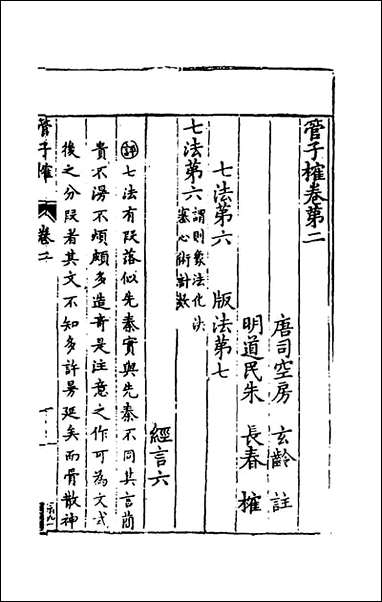 管子榷卷第二
唐司空房　玄齡　註
明道民朱　長春　榷
七法第六　版法第七
七法第六 謂則象法化決
塞心術計數
經言六
評七法有段落似先秦實與先秦不同其言簡
貴不漫不煩頗多造奇是注意之作可為文式
後之分段者其文不知多許曼延矣而骨散神
管子榷
卷二